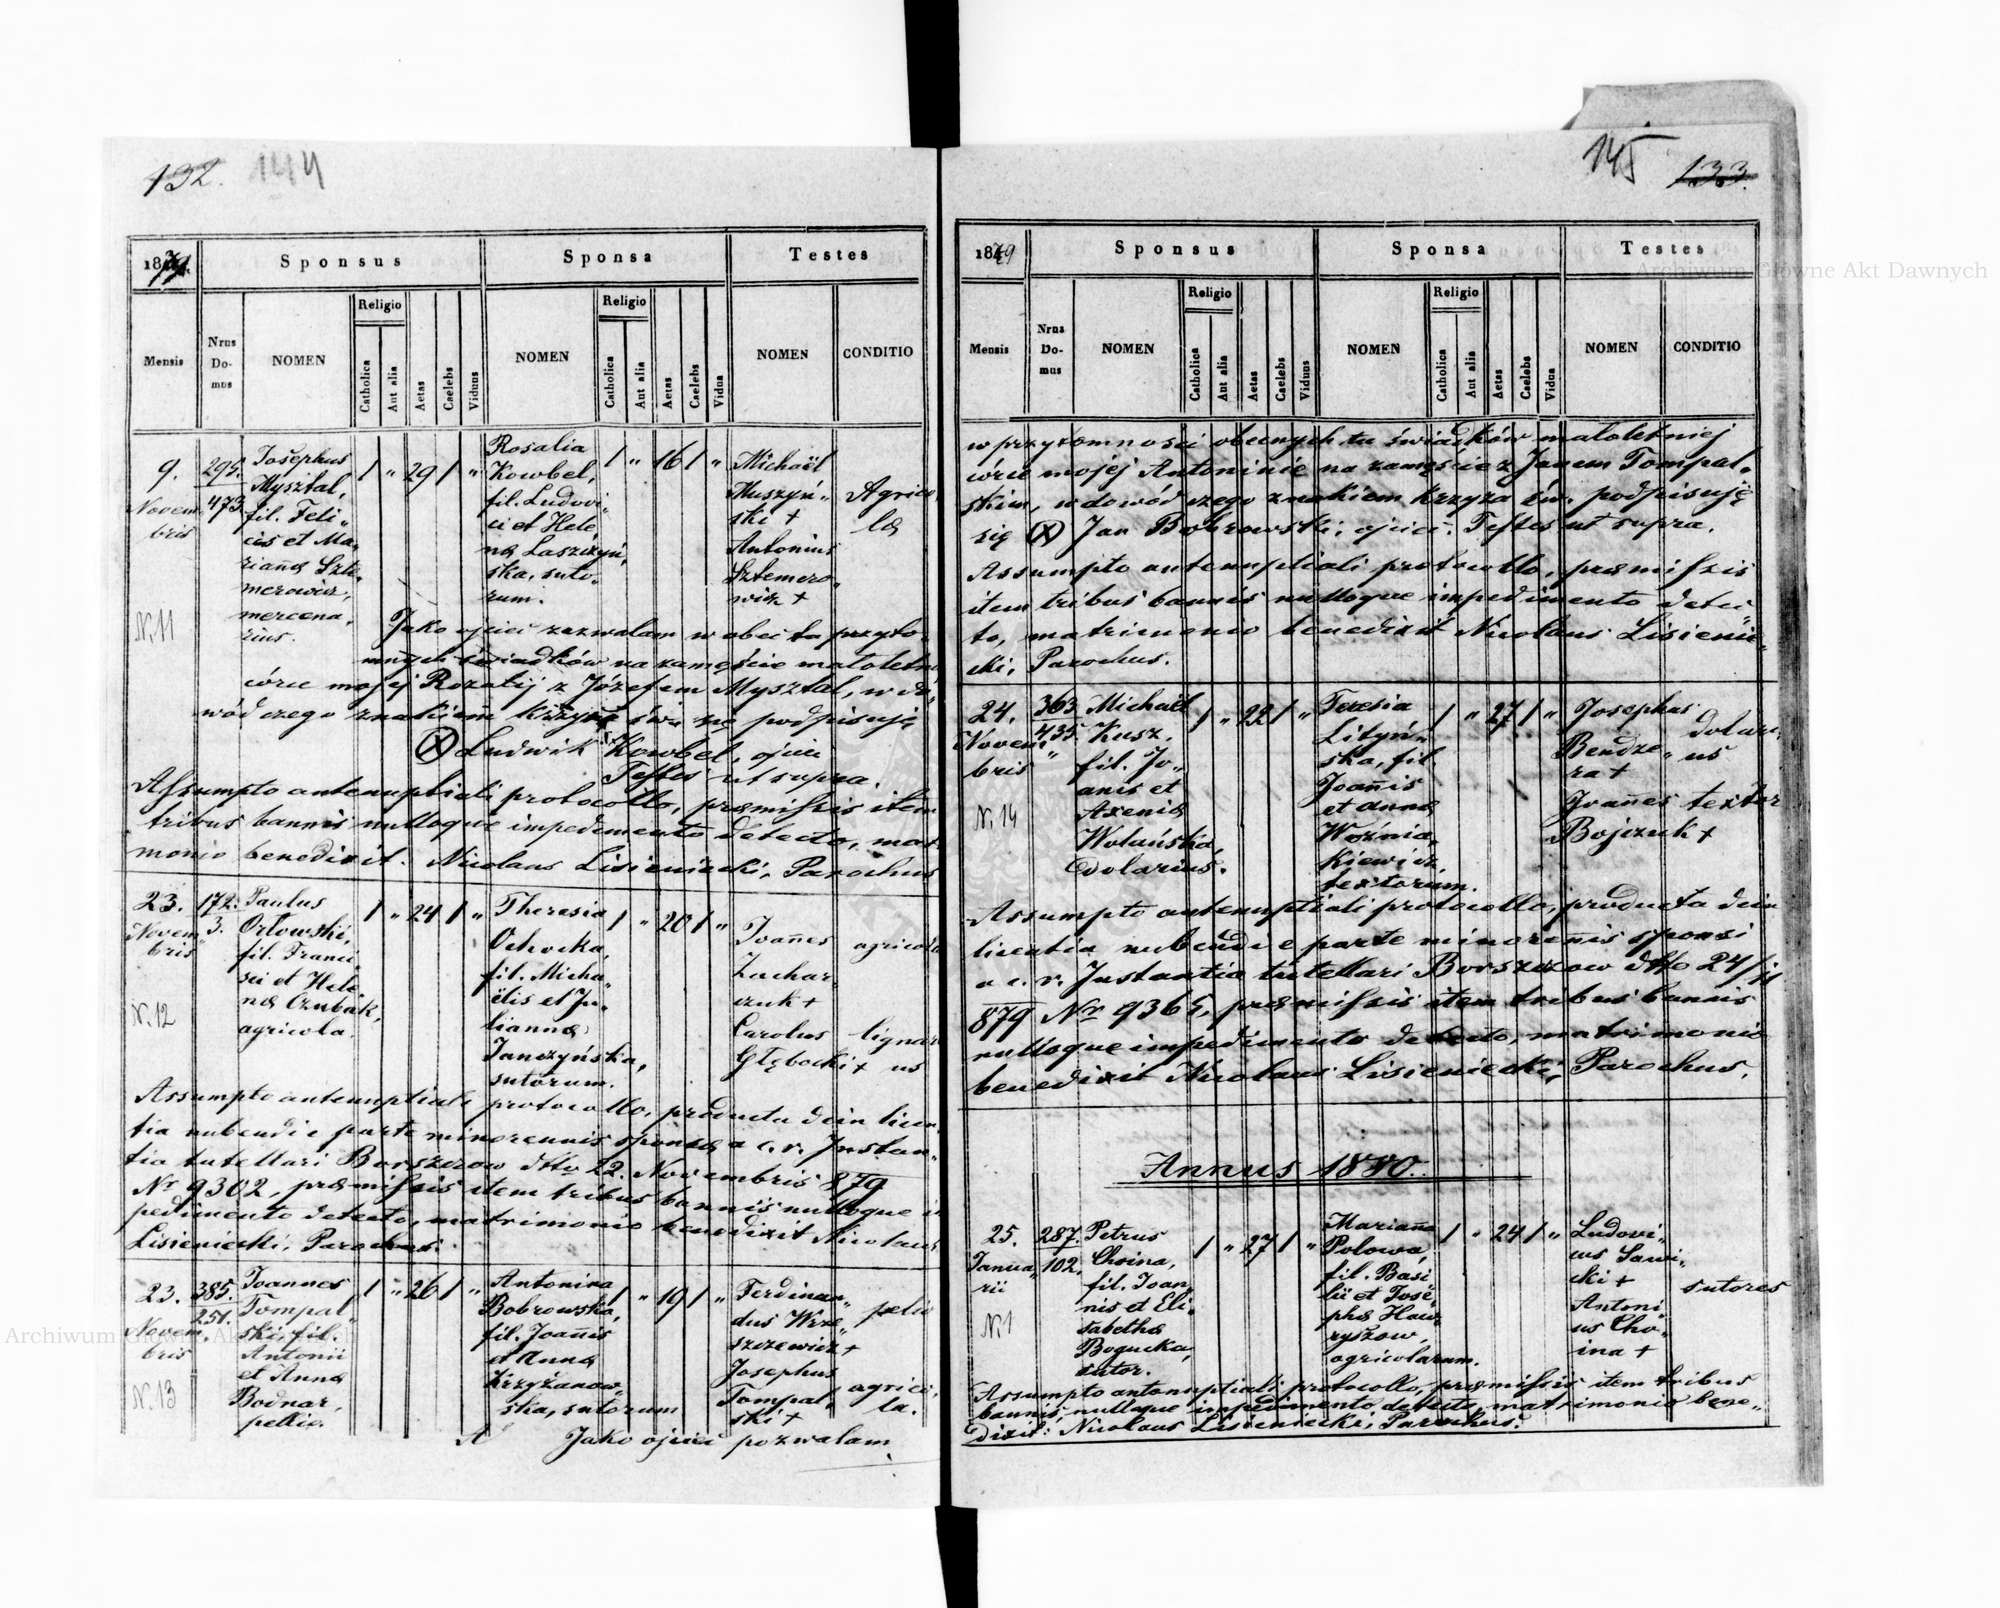 132. 144
1879.
Sponsus
Sponsa
Testes
Mensis
Nrus Do-mus
NOMEN
Religio
Catholica
Aut alia
Aetas
Caelebs
Viduus
NOMEN
Religio
Catholica
Aut alia
Aetas
Caelebs
Vidua
NOMEN
CONDITIO
9.
Novem
bris
N. 11
295.
473.
Josephus
Mysztal,
fil. Feli„
cis et Ma„
riañæ Szte„
merowicz,
mercena„
rius.
/ „ 29 / „
Rosalia
Kowbel,
fil. Ludovi„
ci et Hele„
næ Laszczyń„
ska, suto„
rum.
/ „ 16 / „
Michaël
Muszyń„
ski +
Antonius
Sztemero„
wicz +
Agrico„
læ
Jako ojciec zezwalam w obec tu przyto„
mnych świadków na zamęście małoletni
córce mojej Rozalij z Józefem Mysztal, w do„
wód czego znakiem krzyża św. się podpisuję
(X) Ludwik Kowbel, ojciec
Testes ut supra.
Assumpto antenuptiali protocollo, præmissis item
tribus bannis nulloque impedimento detecto, matr
monio benedixit. Nicolaus Lisieniecki, Parochus
23.
Novem„
bris
N. 12
172.
3.
Paulus
Orłowski,
fil. Franci„
sci et Hele„
næ Czubak,
agricola.
/ „ 24 / „
Theresia
Ochocka,
fil. Micha„
ëlis et Ju„
liannæ
Janczyńska,
sutorum.
/ „ 20 / „
Joañes
Zachar„
czuk +
Carolus
Głębocki +
agricola
lignar
us
Assumpto antenuptiali protocollo, producta dein licen„
tia nubendi e parte minorennis sponsæ a c. r. Instan„
tia tutellari Borszczow dtto 22. Novembris 879
Nr 9302, præmissis item tribus bannis nulloque im
pedimento detecto, matrimonio benedixit Nicolaus
Lisieniecki, Parochus.
23.
Novem„
bris
N. 13
385.
251.
Joannes
Tompal„
ski, fil.
Antonii
et Annæ
Bodnar,
pellio.
/ „ 26 / „
Antonina
Bobrowska,
fil. Joañis
et Annæ
Krzyżanow„
ska, sutorum
/ „ 19 / „
Ferdinan„
dus Wrze„
szczewicz +
Josephus
Tompal„
ski +
pelio
agrico„
la.
Jako ojciec pozwalam
145 133.
1879
Sponsus
Sponsa
Testes
Mensis
Nrus Do-mus
NOMEN
Religio
Catholica
Aut alia
Aetas
Caelebs
Viduus
NOMEN
Religio
Catholica
Aut alia
Aetas
Caelebs
Vidua
NOMEN
CONDITIO
w przytomnosci obecnych tu świadków małoletniej
córce mojej Antoninie na zamęście z Janem Tompal„
skim, w dowód czego znakiem krzyża św. podpisuję
się (X) Jan Bobrowski, ojciec. Testes ut supra.
Assumpto antenuptiali protocollo, præmissis
item tribus bannis nulloque impedimento detec„
to, matrimonio benedixit Nicolaus Lisienie„
cki, Parochus.
24.
Novem„
bris
N. 14
363
435.
Michaël
Kusz,
fil. Jo„
anis et
Axeniæ
Wolańska,
dolarius.
/ „ 22 / „
Teresia
Lityń„
ska, fil.
Joañis
et Annæ
Woźnia„
kiewicz,
textorum.
/ „ 27 / „
Josephus
Bendze„
ra +
Joañes
Bojczuk +
dolari„
us
textor
Assumpto antenuptiali protocollo, producta dein
licentia nubendi e parte minorenis sponsi
a c. r. Instantia tutellari Borszczow dtto 24/11
879 Nr 9365, præmissis item tribus bannis
nulloque impedimento detecto, matrimonio
benedixit Nicolaus Lisieniecki, Parochus.
Annus 1880.
25.
Janua„
rii
N. 1
287.
102.
Petrus
Choina,
fil. Joan„
nis et Eli„
sabethæ
Bogucka,
sutor.
/ „ 27 / „
Mariaña
Polowa,
fil. Basi„
lii et Jose„
phæ Haw„
ryszow,
agricolarum.
/ „ 24 / „
Ludovi„
cus Sawi„
cki +
Antoni„
us Cho„
ina +
sutores
Assumpto antenuptiali protocollo, præmissis item tribus
bannis, nulloque impedimento detecto, matrimonio bene„
dixit: Nicolaus Lisieniecki, Parochus.
Archiwum Główne Akt Dawnych
Archiwum Główne Akt Dawnych